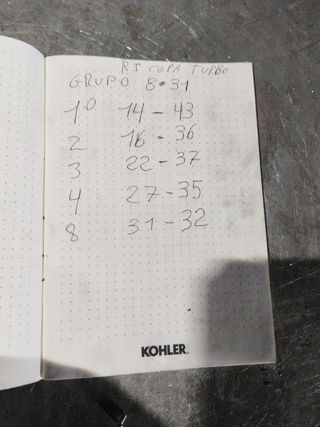 RI COPA TURBO
GRUPO 8·31
1º 14-43
2 16-36
3 22-37
4 27-35
8 31-32
KOHLER